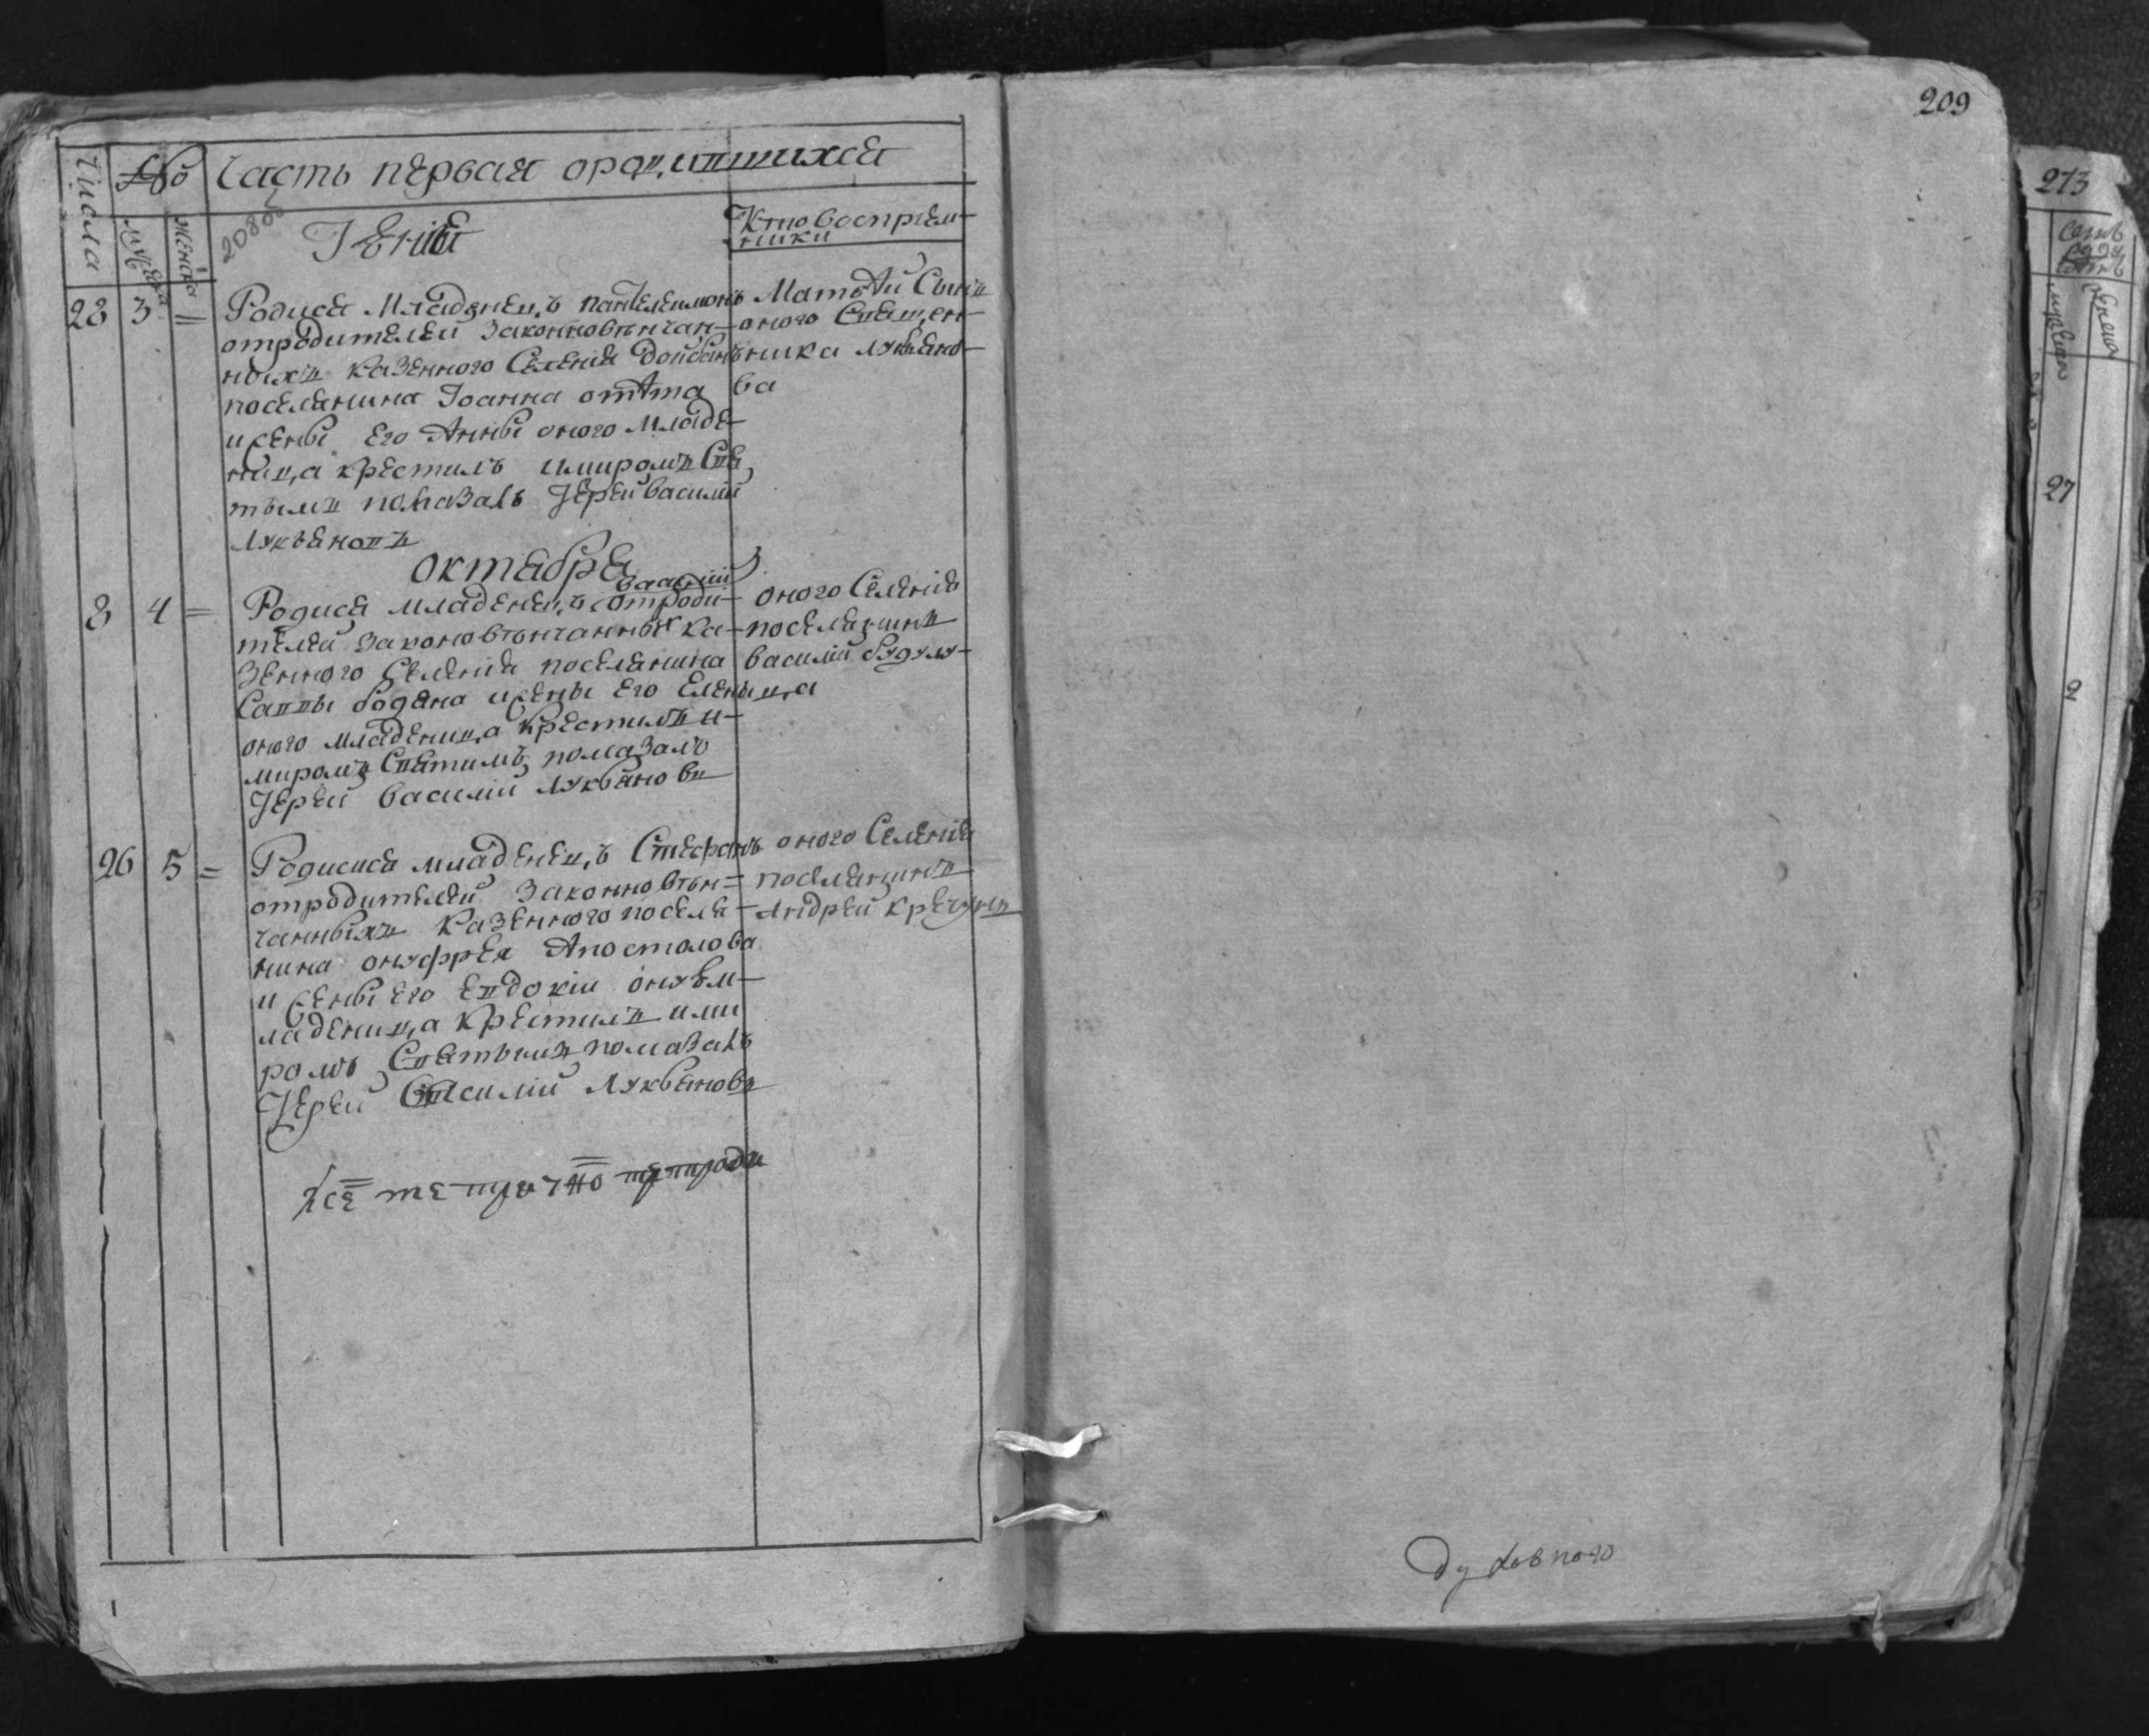 Числа
№
Часть первая орадившихся
мужеска
женска
Іеніе
Кто восприем-
ники
23 3 = Родися Младенецъ пантелеимонъ
отрадителей законновѣнчан-
ныхъ казенного Селенія Дойбанъ
поселянина Іоанна
ижены Его Анны оного Младе-
нца крестилъ имиромъ Свя
тымъ помазалъ Іерей василій
Лукъяновъ
Матѳей Сынъ
оного Священ-
ника лукьяно-
ва
октября
8 4 = Родися младенецъ василий отроди-
телей законовѣнчанных ка-
зенного Селенія поселянина
Саввы бодяна ижены Его Елены
оного младенца Крестилъ и-
миромъ Святимъ помазалъ
Іерей василий Лукьяновъ
оного Селенія
поселянинъ
василий будулу-
ца
26 5 = Родисися младенецъ Стефанъ
отрадителей законновѣн=
чанныхъ казенного поселя-
нина онуфрея Апостолова
и жены Его Евдокіи онуѣм-
ладенца крестилъ ими
ромъ Святымъ помазалъ
Іерей Василий Лукьяновъ
оного Селенія
поселянинъ
Андрей кречунъ
209
Духовного
273
27
2